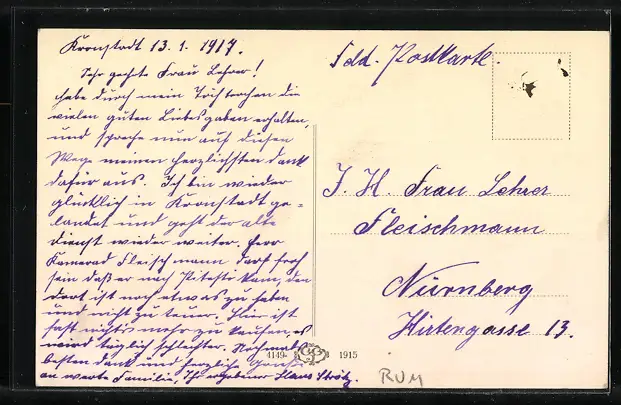 Kronstadt 13.1.1917.
Sehr geehrte Frau Lehrer!
habe durch mein Töchterchen die
vielen guten Liebesgaben erhalten,
und spreche nun auf diesen
Wege meinen herzlichsten Dank
dafür aus. Ich bin wieder
glücklich in Kronstadt ge-
landet und geht der alte
Dienst wieder weiter. Herr
Kamerad Fleischmann darf froh
sein daß er nach Pitesti kam, den
dort ist noch etwas zu haben
und nicht zu teuer. Hier ist
fast nichts mehr zu kaufen, es
wird täglich schlechter. Nochmals
besten Dank und herzliche
an werte Familie, Ihr ergebener Hans
Feld-Postkarte.
I. H. Frau Lehrer
Fleischmann
Nürnberg
Hirtengasse 13.
4149 1915
RUM